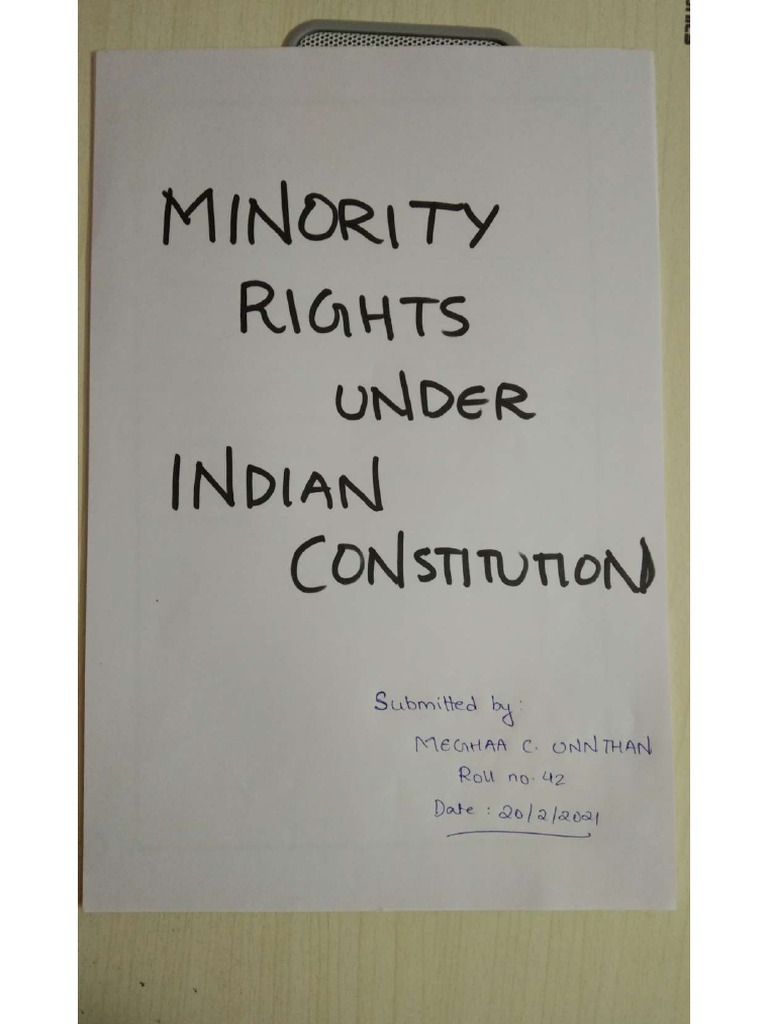 MINORITY
RIGHTS
UNDER
INDIAN
CONSTITUTION
Submitted by:
MEGHAA C. UNNTHAN
Roll no. 42
Date : 20/2/2021